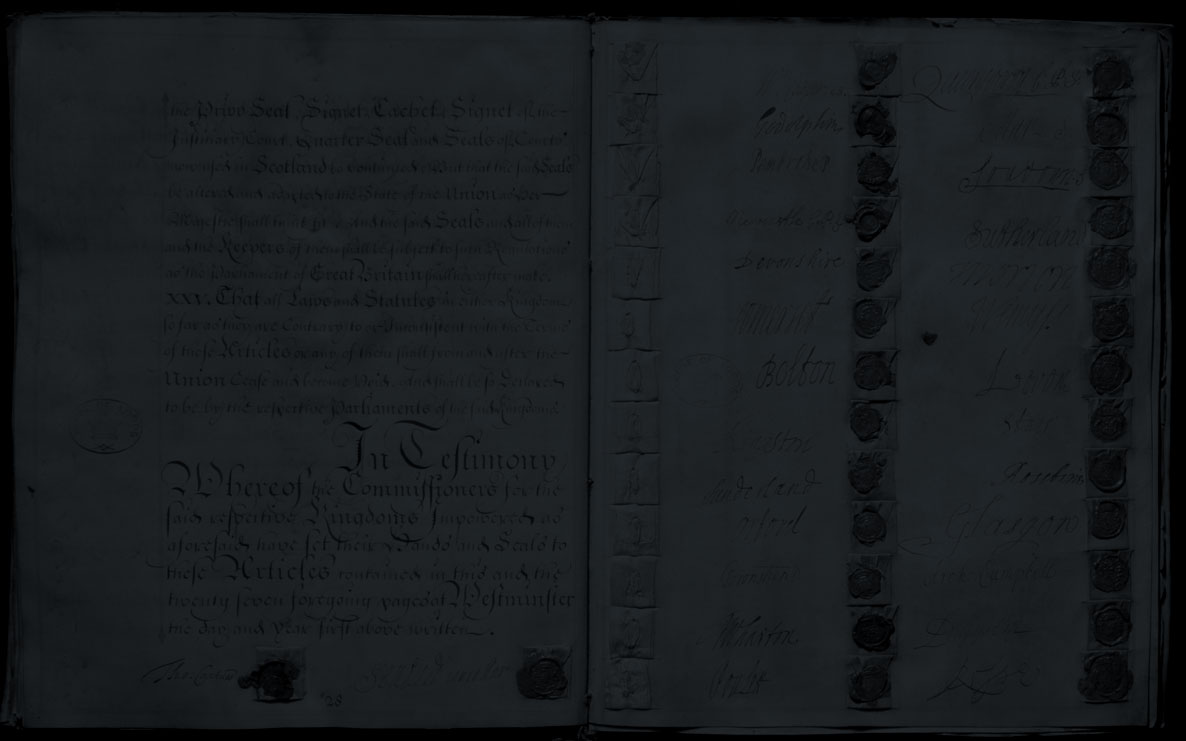 the Privy Seal, Signet, Cachet, Signet of the
Justiciary Court, Quarter Seal and Seals of Courts
now used in Scotland be Continued, But that the said Seals
be altered and adapted to the State of the Union as Her
Majestie shall think fit, and the said Seals and all of them
and the Keepers of them shall be subject to such Regulations
as the Parliament of Great Britain shall hereafter make.
XXV. That all Laws and Statutes in either Kingdom
so far as they are Contrary to or Inconsistent with the Terms
of these Articles or any of them shall from and after the
Union Cease and become Void, and shall be so Declared
to be by the respective Parliaments of the said Kingdoms
In Testimony
Whereof the Commissioners for the
said respective Kingdoms Impowered as
aforesaid have set their Hands and Seals to
these Articles contained in this and the
twenty seven foregoing pages at Westminster
the day and year first above written.
28
Godolphin
Devonshire
Bolton
Kingston
Sunderland
Orford
Wharton
Sutherland
Morton
Leven
Stair
Glasgow
Campbell